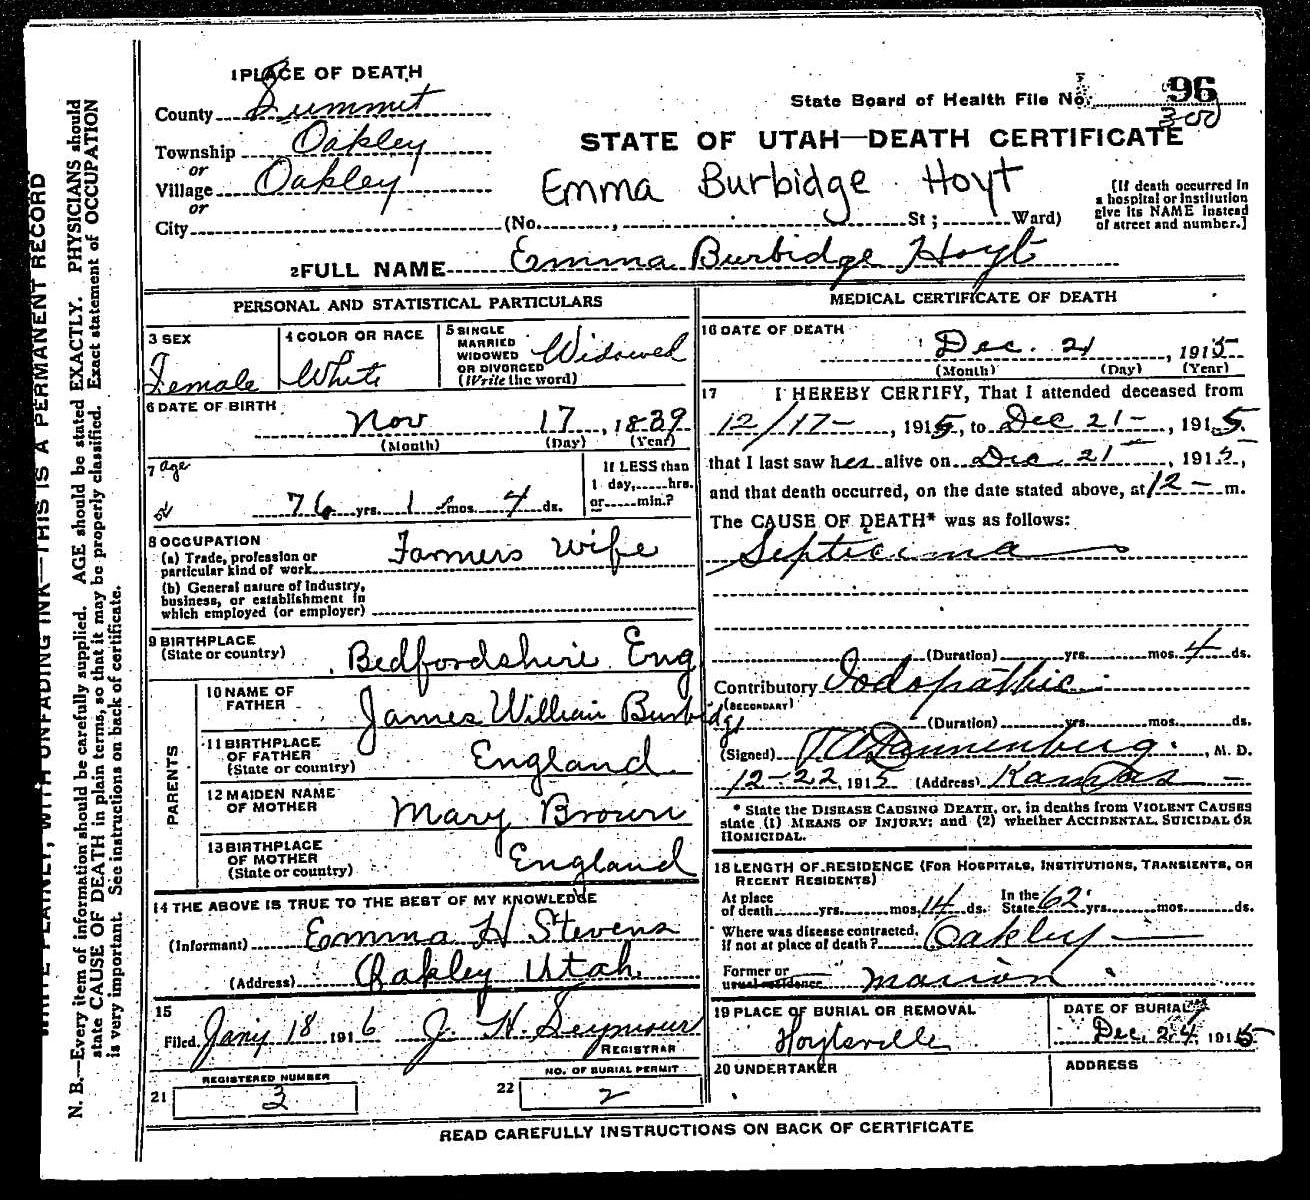 1 PLACE OF DEATH
County Summit
Township Oakley
or
Village Oakley
or
City
State Board of Health File No. 96
300
STATE OF UTAH—DEATH CERTIFICATE
Emma Burbidge Hoyt
(No. , St; Ward)
[If death occurred in
a hospital or institution
give its NAME instead
of street and number.]
2 FULL NAME Emma Burbidge Hoyt
PERSONAL AND STATISTICAL PARTICULARS
3 SEX
Female
4 COLOR OR RACE
White
5 SINGLE
MARRIED
WIDOWED
OR DIVORCED
(Write the word)
Widowed
6 DATE OF BIRTH
Nov 17, 1839
(Month) (Day) (Year)
7 age
76 yrs. 1 mos. 4 ds.
If LESS than
1 day, hrs.
or min.?
8 OCCUPATION
(a) Trade, profession or
particular kind of work
Farmers Wife
(b) General nature of industry,
business, or establishment in
which employed (or employer)
9 BIRTHPLACE
(State or country)
Bedfordshire Eng
PARENTS
10 NAME OF
FATHER
James William Burbidge
11 BIRTHPLACE
OF FATHER
(State or country)
England
12 MAIDEN NAME
OF MOTHER
Mary Brown
13 BIRTHPLACE
OF MOTHER
(State or country)
England
14 THE ABOVE IS TRUE TO THE BEST OF MY KNOWLEDGE
(Informant) Emma H Stevens
(Address) Oakley Utah
15
Filed Jany 18 1916 J. H. Seymour
REGISTRAR
REGISTERED NUMBER
21 3
NO. OF BURIAL PERMIT
22 2
MEDICAL CERTIFICATE OF DEATH
16 DATE OF DEATH
Dec. 21, 1915
(Month) (Day) (Year)
17 I HEREBY CERTIFY, That I attended deceased from
12/17-, 1915, to Dec 21-, 1915.
that I last saw her alive on Dec. 21, 1915,
and that death occurred, on the date stated above, at 12- m.
The CAUSE OF DEATH* was as follows:
Septicima
(Duration) yrs. mos. 4 ds.
Contributory Iodopathic
(SECONDARY)
(Duration) yrs. mos. ds.
(Signed) Dannenburg, M. D.
12-22, 1915 (Address) Kamas
* State the DISEASE CAUSING DEATH, or, in deaths from VIOLENT CAUSES
state (1) MEANS OF INJURY; and (2) whether ACCIDENTAL, SUICIDAL OR
HOMICIDAL.
18 LENGTH OF RESIDENCE (FOR HOSPITALS, INSTITUTIONS, TRANSIENTS, OR
RECENT RESIDENTS)
At place
of death yrs. mos. 14 ds. In the State 62 yrs. mos. ds.
Where was disease contracted,
if not at place of death? Oakley
Former or
usual residence Marion
19 PLACE OF BURIAL OR REMOVAL
Hoytsville
DATE OF BURIAL
Dec. 24, 1915
20 UNDERTAKER
ADDRESS
READ CAREFULLY INSTRUCTIONS ON BACK OF CERTIFICATE
WRITE PLAINLY, WITH UNFADING INK—THIS IS A PERMANENT RECORD
N. B.—Every item of information should be carefully supplied. AGE should be stated EXACTLY. PHYSICIANS should
state CAUSE OF DEATH in plain terms, so that it may be properly classified. Exact statement of OCCUPATION
is very important. See instructions on back of certificate.